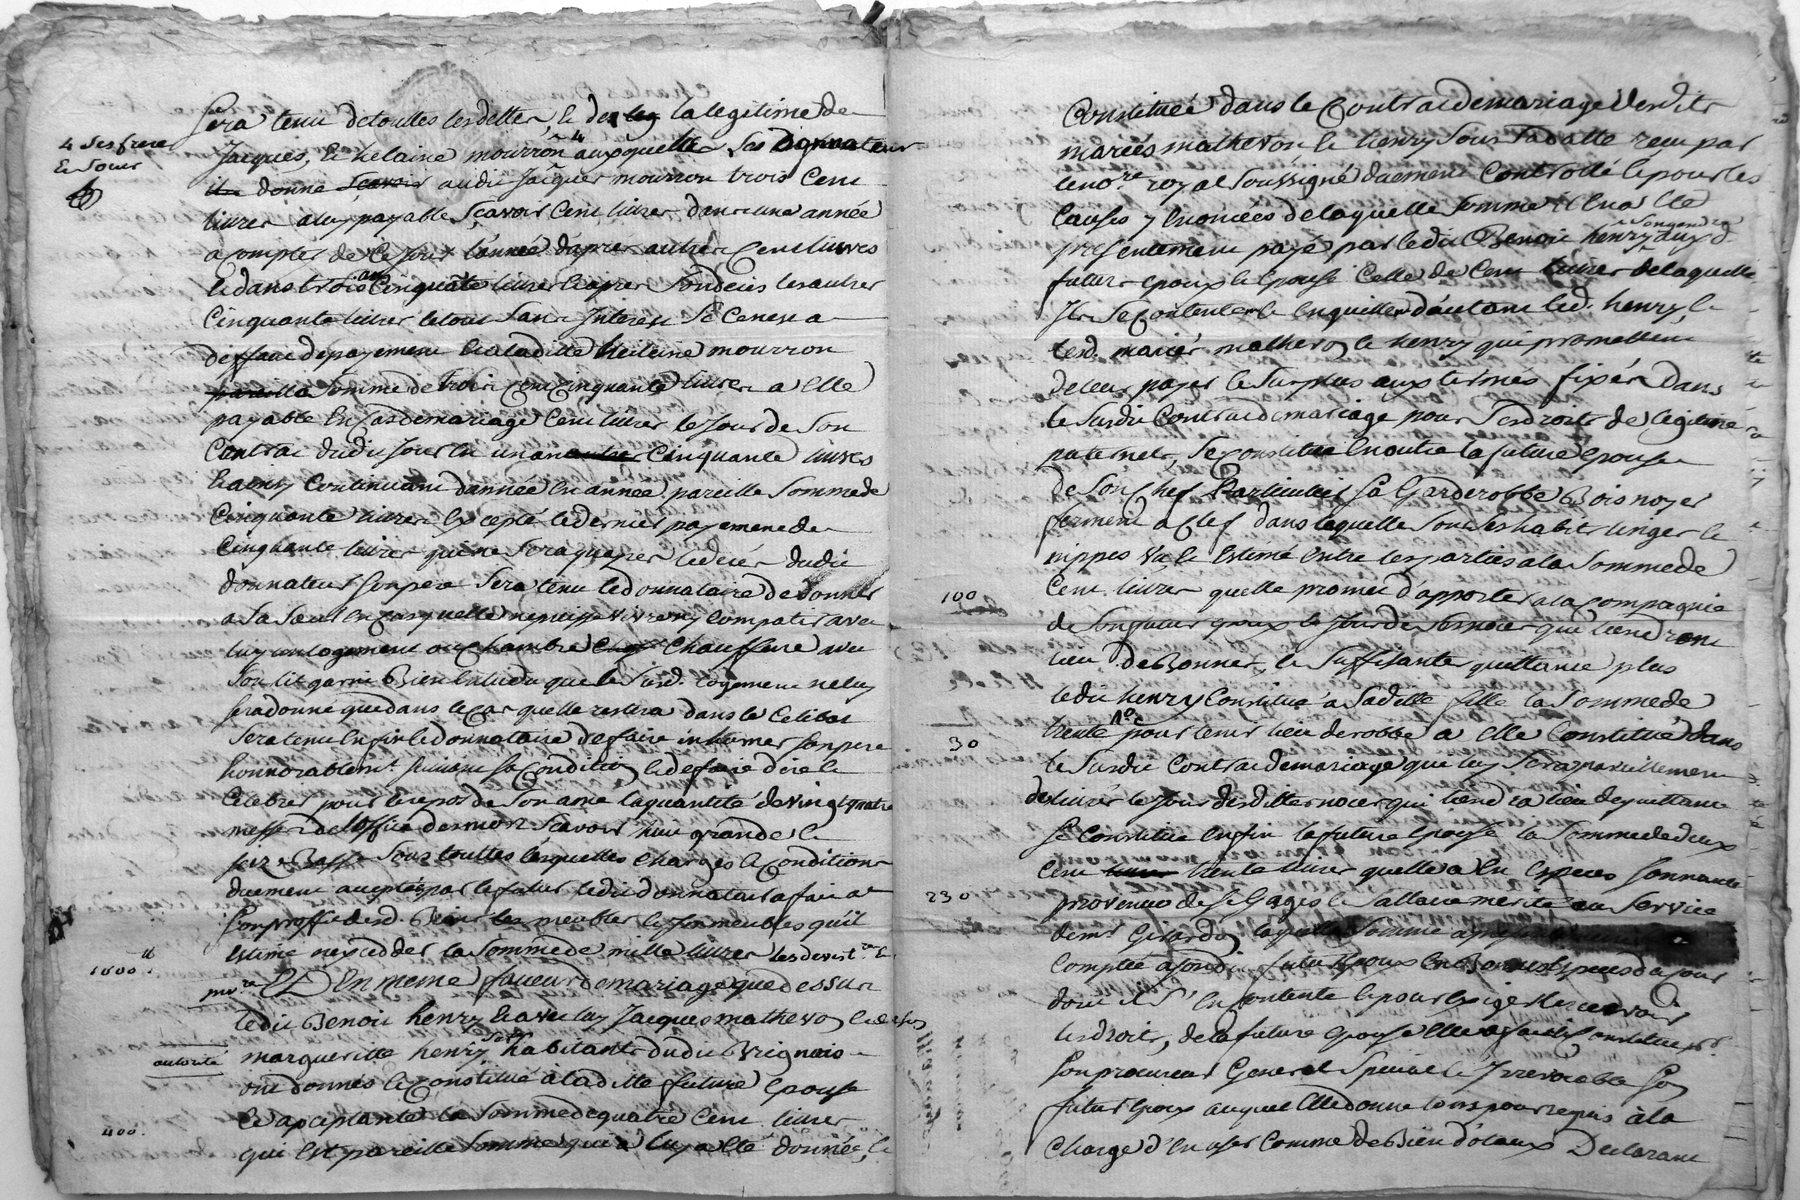 Sera tenu de touttes les dettes, & de la legitime de
4 ses frere
& soeur
Jacques, & helaine mourron auxquelles
donne audit Jacques mourron trois Cent
livres a luy payable Sçavoir Cent livres dans une année
a compter de Ce Jour l'année d'apres autres Cent livres
& dans trois ans Cinquante livres & apres son deces les autres
Cinquante livres le tout sans Interest Si Ce n'est a
deffaut de payement & a laditte heilaine mourron
pareille Somme de trois Cent Cinquante livres a Elle
payable En Cas de mariage Cent livres le Jour de Son
Contrat dudit Jour En un an Cinquante livres
& ainsy Continuant d'année En année pareille Somme de
Cinquante livres Excepté le dernier payement de
Cinquante livres qui ne sera qu'apres le deces dudit
donnateur son pere Sera tenu le donnataire de donner
a Sa Soeur En Cas quelle ne puisse vivre ny Compatir avec
luy un logement ou Chambre Chauffure avec
Son lit garni Bien Entendu que le Susd. logement ne luy
sera donné que dans le Cas quelle restera dans le Celibat
Sera tenu Enfin le donnataire de faire inhumer Son pere
honnorablemt. suivant Sa Condition & de faire dire &
Celebrer pour le repos de Son ame la quantité de vingt quatre
messes de l'office des morts Scavoir huit grandes &
seize Basses Sous touttes lesquelles Charges & Conditions
duement acceptées par le futur ledit donnateur a fait
Son proffit desd. Biens les meubles & Immeubles qu'il
Estime n'exceder la Somme de mille livres
1000.tt
En meme faveur de mariage que dessus
ledit Benoit henry & avec luy Jacques mathevon & de
autorité
margueritte henry habitants dudit Brignais
ont donnés & Constitué a laditte future Epouse
Ce acceptante la Somme de quatre Cent livres
400.
qui Est pareille Somme qui a luy a Eté donnée, &
Constituée dans le Contrat de mariage desdits
mariés mathevon & henry Sous Sa datte reçu par
le no.re royal Soussigné duement Controllé & pour les
Causes y Enoncées de laquelle Somme il En a Eté
presentement payé par ledit Benoit henry aux d.
futurs Epoux & Epouse Celle de Cent livres de laquelle
Ils Se Contentent & En quittent d'autant led. henry, &
lesd. mariés mathevon & henry qui promettent
de leur payer le Surplus aux termes fixés dans
le Susdit Contrat de mariage pour Ses droits de legitime
paternels, Se Constitue En outre la future Epouse
de Son Chef Particulier Sa Garderobbe Bois noyer
fermant a Clef dans laquelle Sont Ses habits linges &
nippes Estimé entre les parties a la Somme de
100
Cent livres quelle promet d'apporter a la Compagnie
de Son futur Epoux le Jour de Ses noces qui tiendront
lieu de Bonne & Suffisante quittance plus
ledit henry Constitue a Saditte fille la Somme de
30
trente pour tenir lieu de robbe a Elle Constitué dans
le Susdit Contrat de mariage que luy Sera pareillement
delivrée le Jour desdittes noces qui tiendra lieu de quittance
Se Constitue Enfin la future Epouse la Somme de deux
Cent trente livres quelle a En Especes Sonnante
230
provenue de Se Gages & Sallaire merité au Service
de mr. Girardon laquelle Somme a
Compté a Sond. futur Epoux En Bonnes Especes de Cours
dont il S'En Contente & pour Exiger & recevoir
les droits, de la future Epouse Elle a fait & Constitué pr.
Son procureur General Special & Irrevocable Son
futur Epoux auquel Elle donne tous pouvoirs à la
Charge d'En user Comme de Bien dotaux Declarant